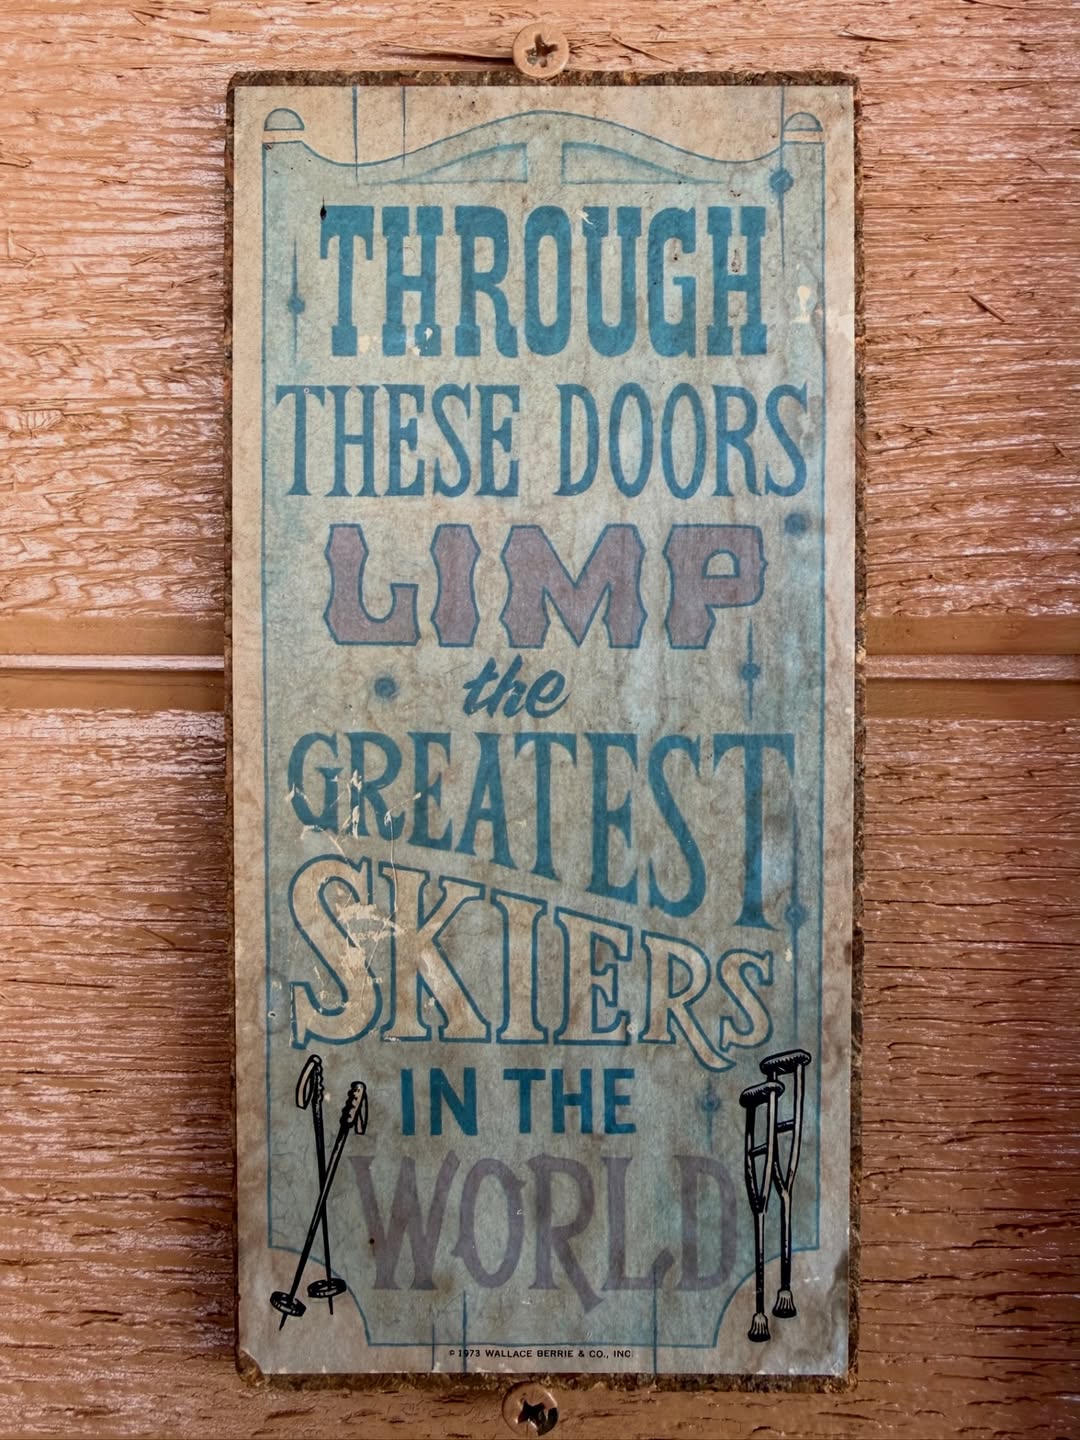 THROUGH
THESE DOORS
LIMP
the
GREATEST
SKIERS
IN THE
WORLD
© 1973 WALLACE BERRIE & CO., INC.